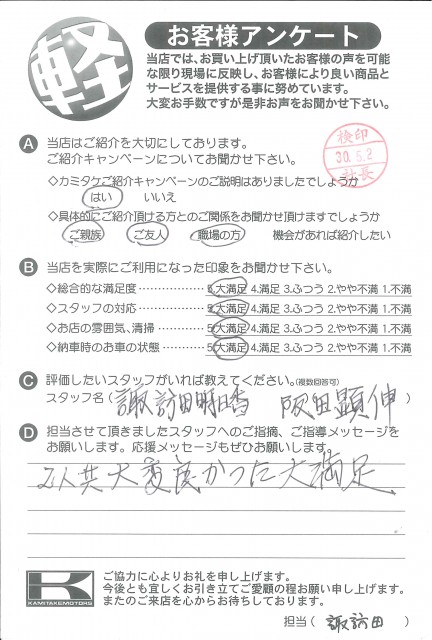 軽
お客様アンケート
当店では、お買い上げ頂いたお客様の声を可能
な限り現場に反映し、お客様により良い商品と
サービスを提供する事に努めています。
大変お手数ですが是非お声をお聞かせ下さい。
検印
30.5.2
社長
A 当店はご紹介を大切にしております。
ご紹介キャンペーンについてお聞かせ下さい。
◇カミタケご紹介キャンペーンのご説明はありましたでしょうか
はい いいえ
◇具体的にご紹介頂ける方とのご関係をお聞かせ頂けますでしょうか
ご親族 ご友人 職場の方 機会があれば紹介したい
B 当店を実際にご利用になった印象をお聞かせ下さい。
◇総合的な満足度 ・・・・・・・・・・・・ 5.大満足 4.満足 3.ふつう 2.やや不満 1.不満
◇スタッフの対応 ・・・・・・・・・・・・ 5.大満足 4.満足 3.ふつう 2.やや不満 1.不満
◇お店の雰囲気、清掃 ・・・・・・・・ 5.大満足 4.満足 3.ふつう 2.やや不満 1.不満
◇納車時のお車の状態 ・・・・・・・・ 5.大満足 4.満足 3.ふつう 2.やや不満 1.不満
C 評価したいスタッフがいれば教えてください。(複数回答可)
スタッフ名 ( 諏訪田明日香 阪田顕伸 )
D 担当させて頂きましたスタッフへのご指摘、ご指導メッセージを
お願いします。応援メッセージもぜひお願いします。
2人共大変良かった大満足
K
KAMITAKEMOTORS
ご協力に心よりお礼を申し上げます。
今後とも宜しくお引き立てご愛顧の程お願い申し上げます。
またのご来店を心からお待ちしております。
担当 ( 諏訪田 )